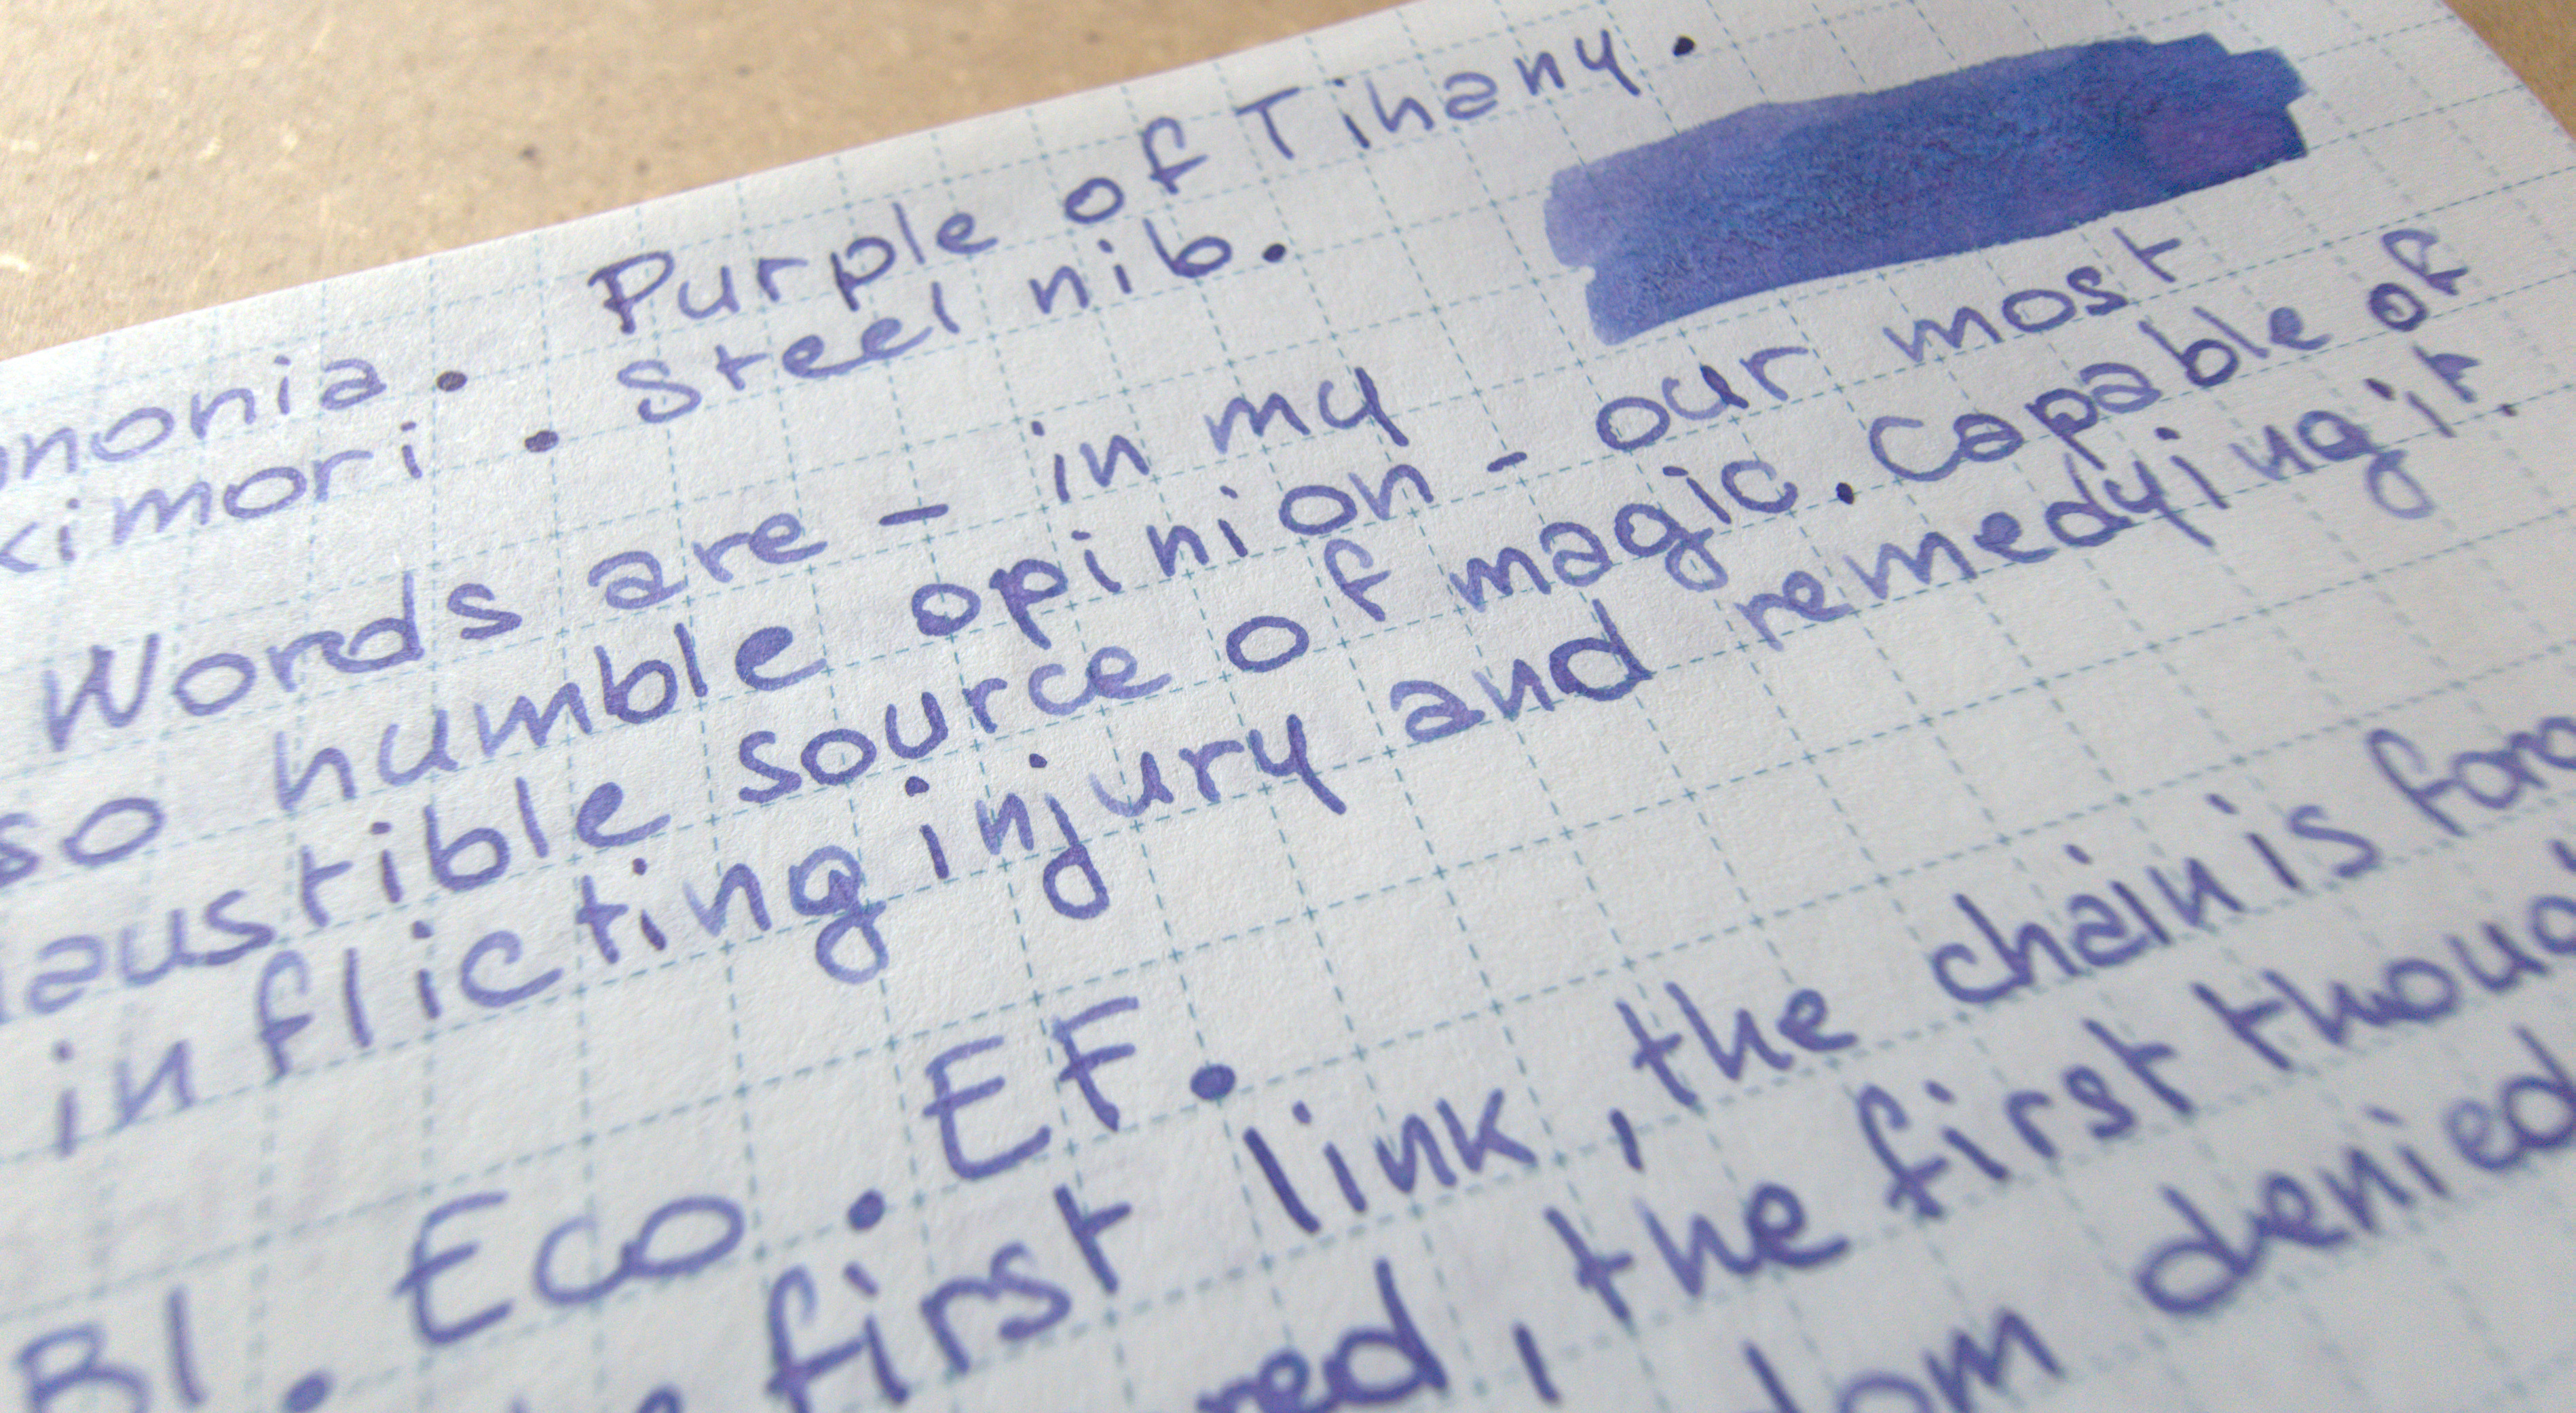 nonia. Purple of Tihany.
kimori. Steel nib.
Words are - in my
so humble opinion - our most
austible source of magic. Capable of
inflicting injury and remedying it.
BI. Eco. EF.
first link, the chain is forg
red, the first thoug
dom denied